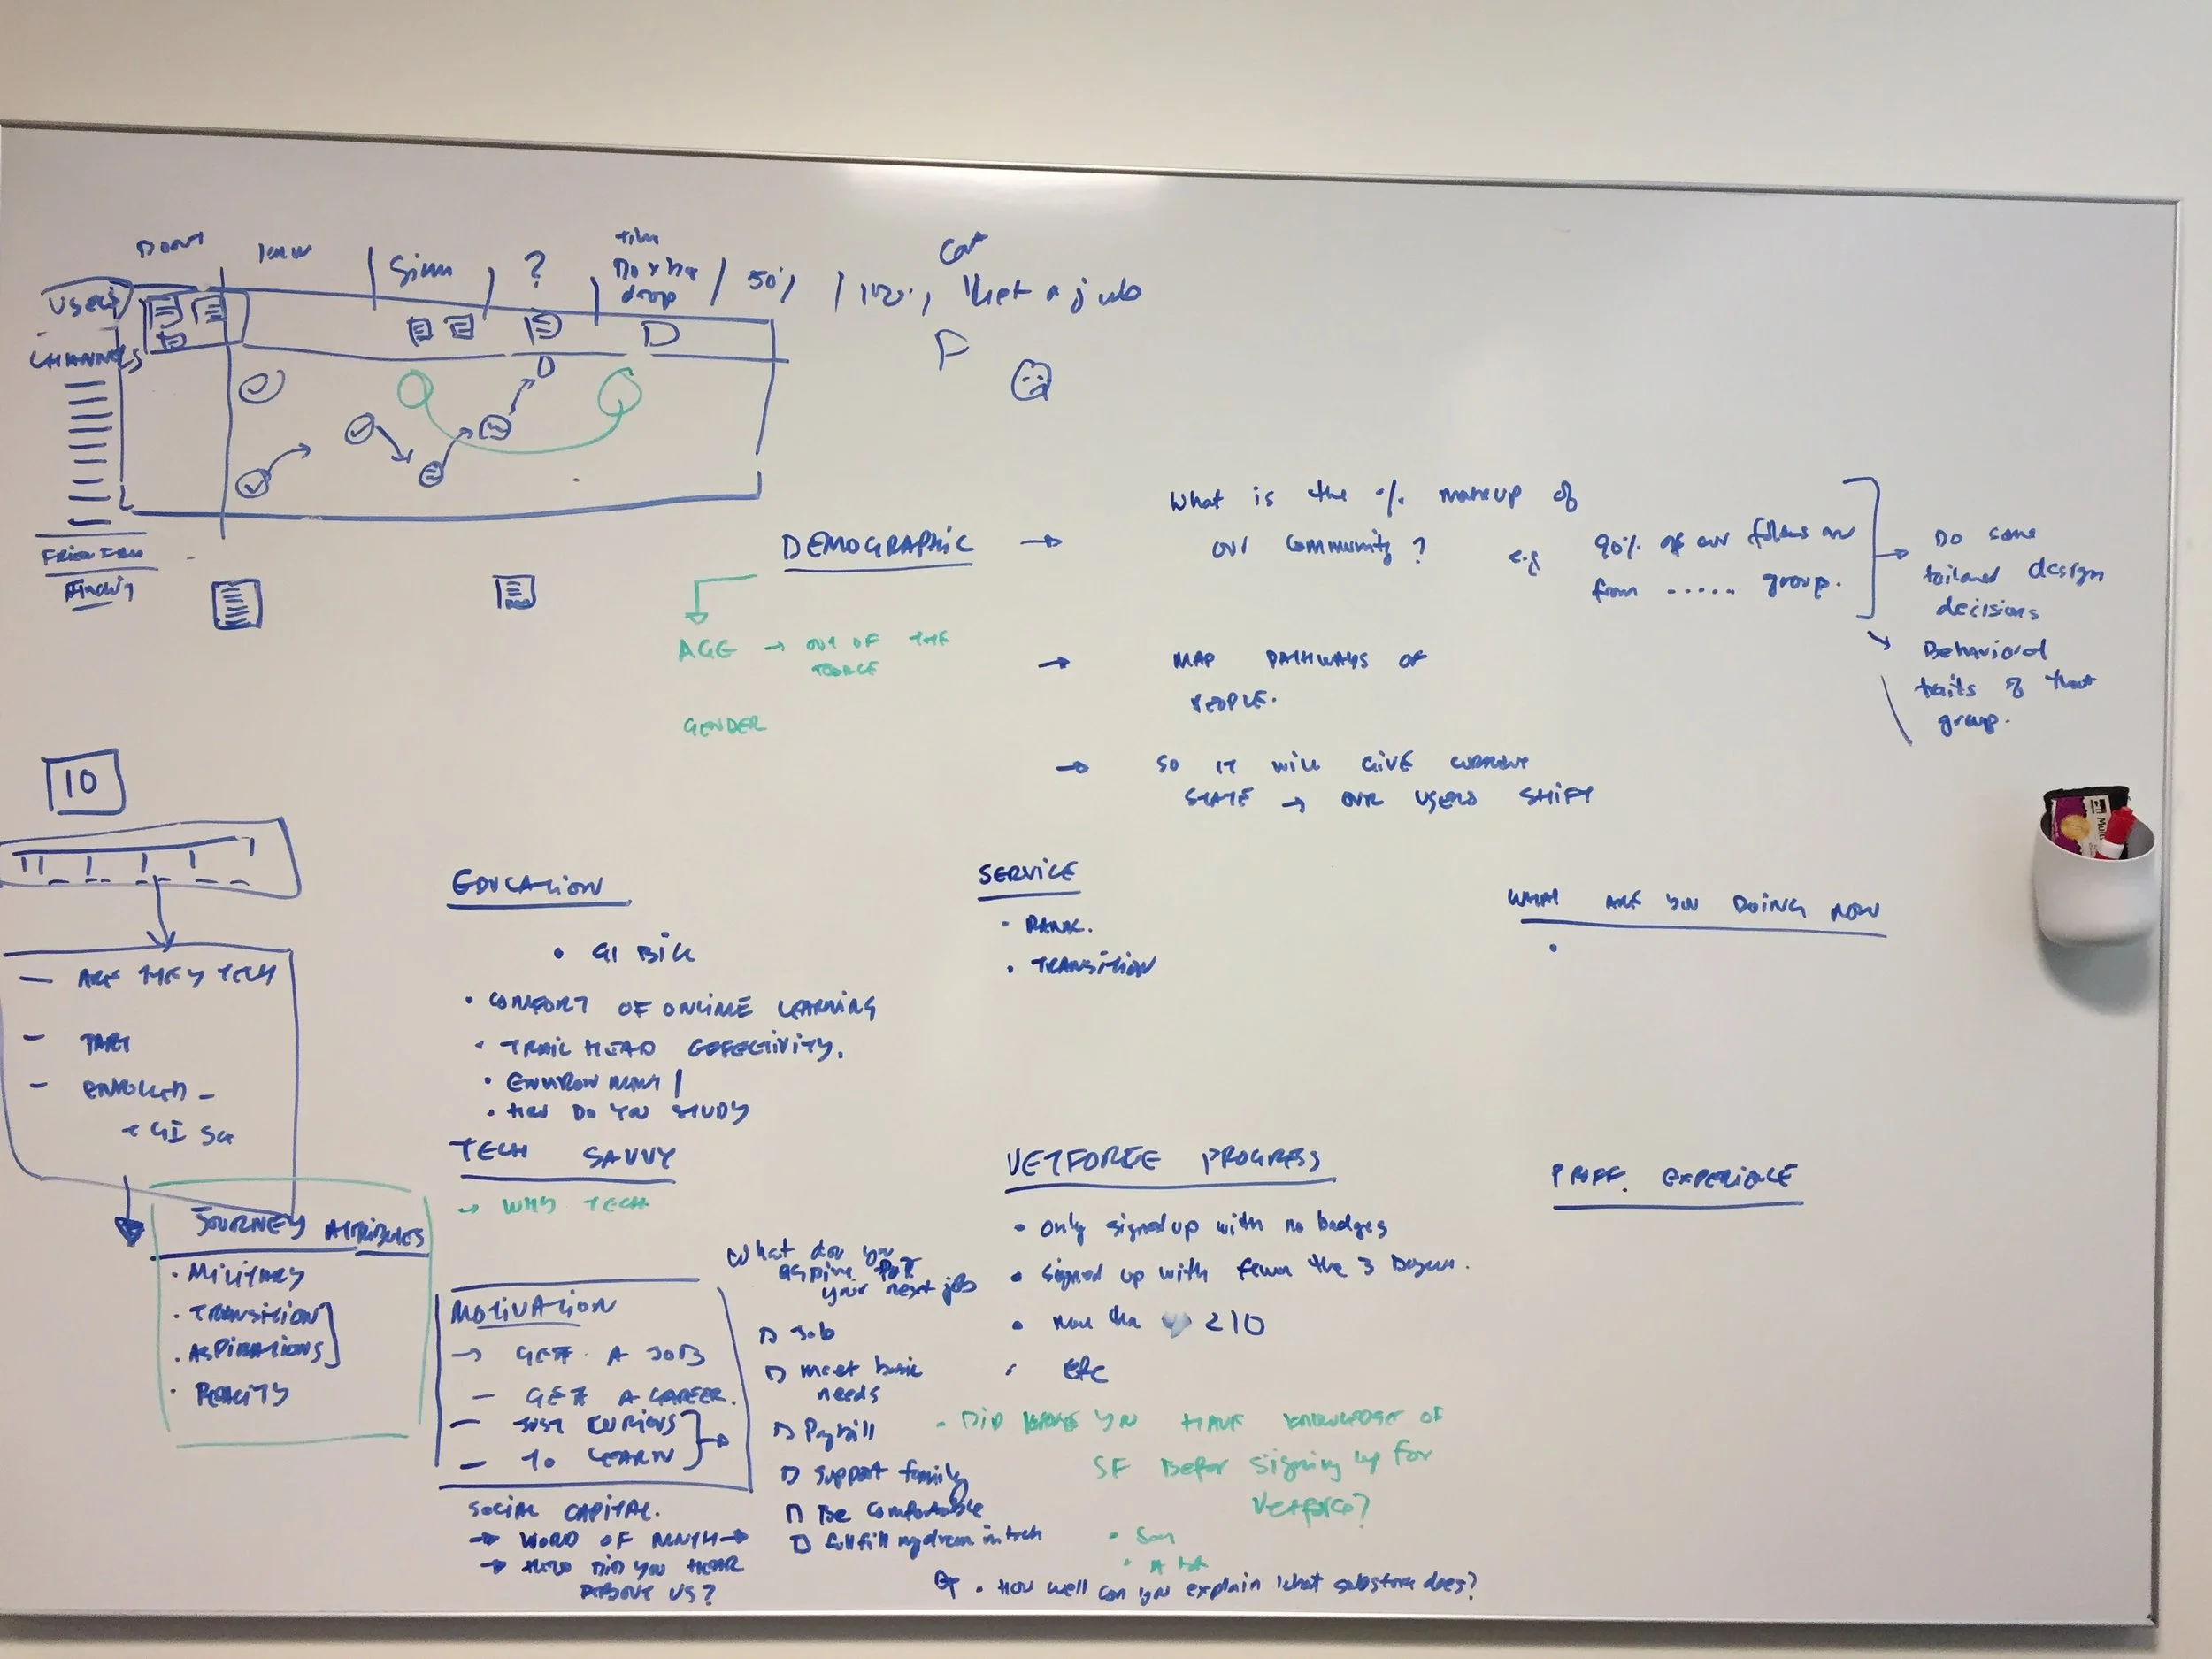 DONT
USERS
CHANNELS
?
50%
get a job
10
DEMOGRAPHIC
What is the % makeup of
our community?
e.g
90% of our folks are
from ...... group.
Do some
tailored design
decisions
Behavioral
traits of that
group.
AGE → OUT OF THE
FORCE
GENDER
MAP PATHWAYS OF
PEOPLE.
SO IT WILL GIVE CURRENT
STATE → OUR USERS SHIFT
- ARE THEY TECH
- ENROLLED -
JOURNEY ATTRIBUTES
• MILITARY
• TRANSITION
• ASPIRATIONS
EDUCATION
• GI BILL
• COMFORT OF ONLINE LEARNING
• TRAIL HEAD EFFECTIVITY.
• ENVIRONMENT
• HOW DO YOU STUDY
SERVICE
• RANK.
• TRANSITION
WHAT ARE YOU DOING NOW
TECH SAVVY
→ WHY TECH
MOTIVATION
→ GET A JOB
- GET A CAREER.
- JUST CURIOUS
- TO LEARN
SOCIAL CAPITAL.
→ WORD OF MOUTH →
→ HOW DID YOU HEAR
ABOUT US?
What do you
aspire for
your next job
Job
meet basic
needs
Pay bill
support family
Be comfortable
fulfill my dream in tech
VETFORCE PROGRESS
• only signed up with no badges
• signed up with fewer the 3
• more than 210
• etc
- DID YOU HAVE KNOWLEDGE OF
SF Before signing up for
Vetforce?
• How well can you explain what does?
PROFF. EXPERIENCE